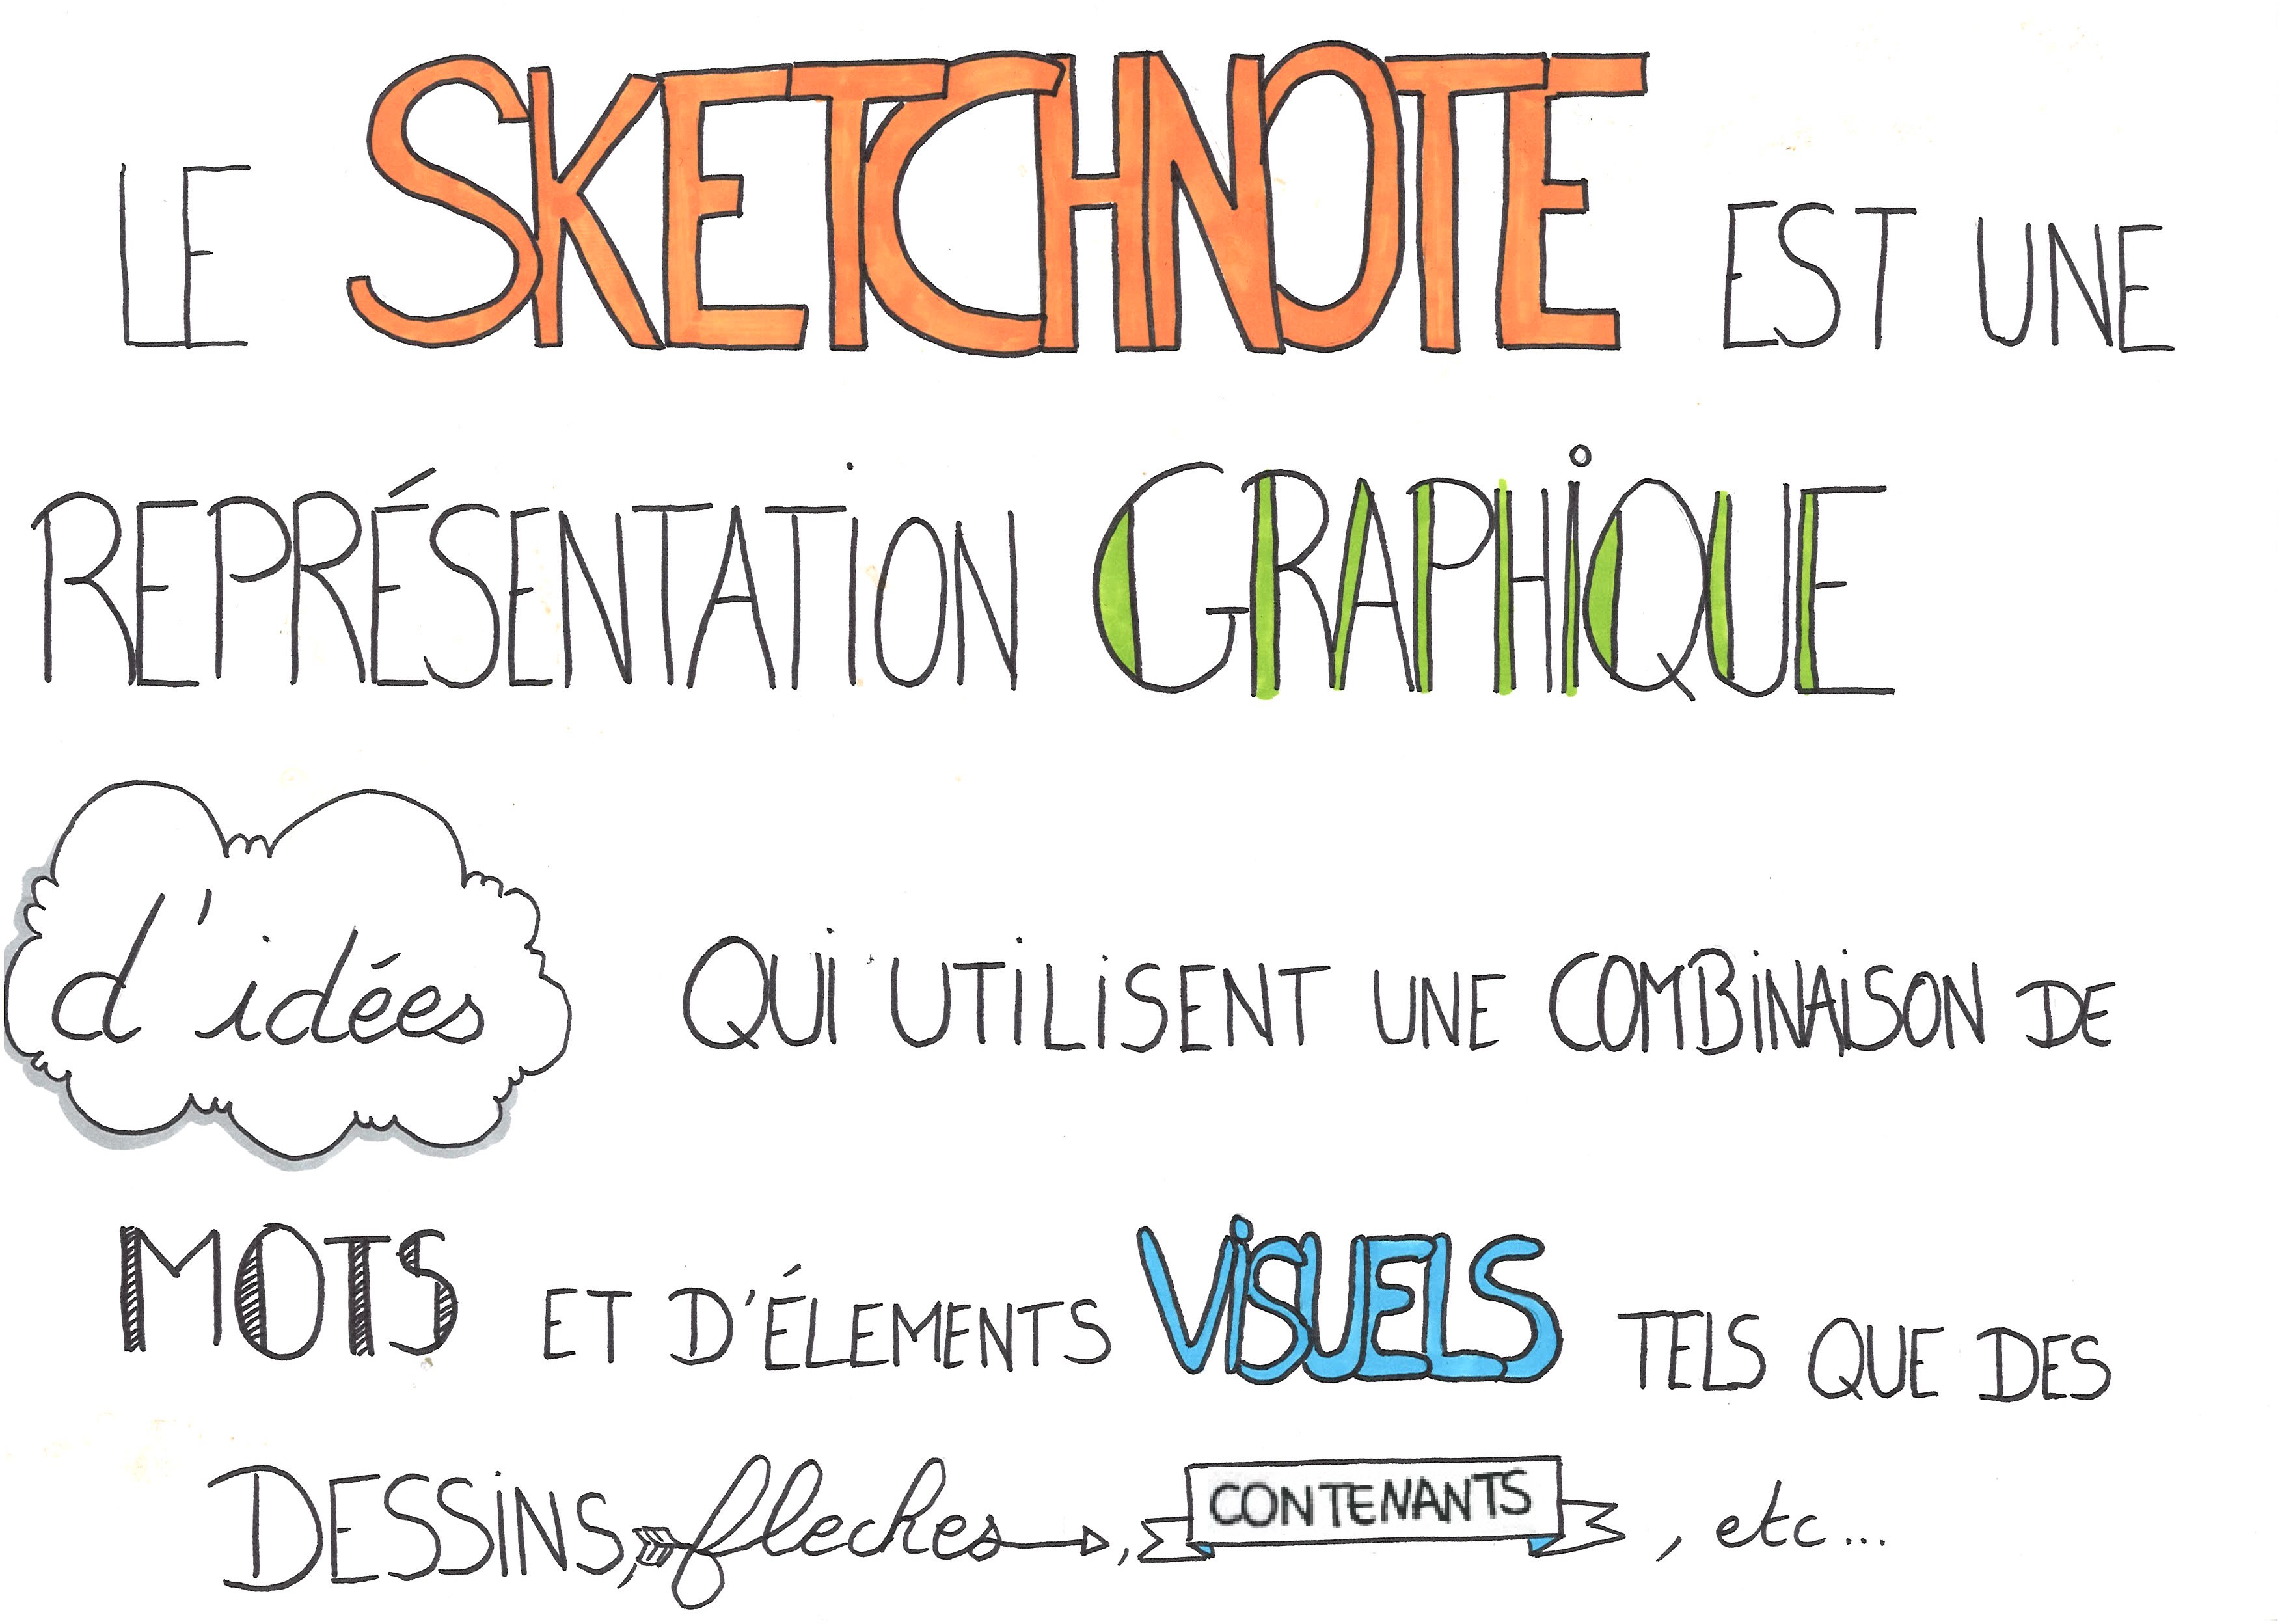 LE SKETCHNOTE EST UNE
REPRÉSENTATION GRAPHIQUE
d'idées QUI UTILISENT UNE COMBINAISON DE
MOTS ET D'ÉLEMENTS VISUELS TELS QUE DES
DESSINS, fleches, CONTENANTS, etc...